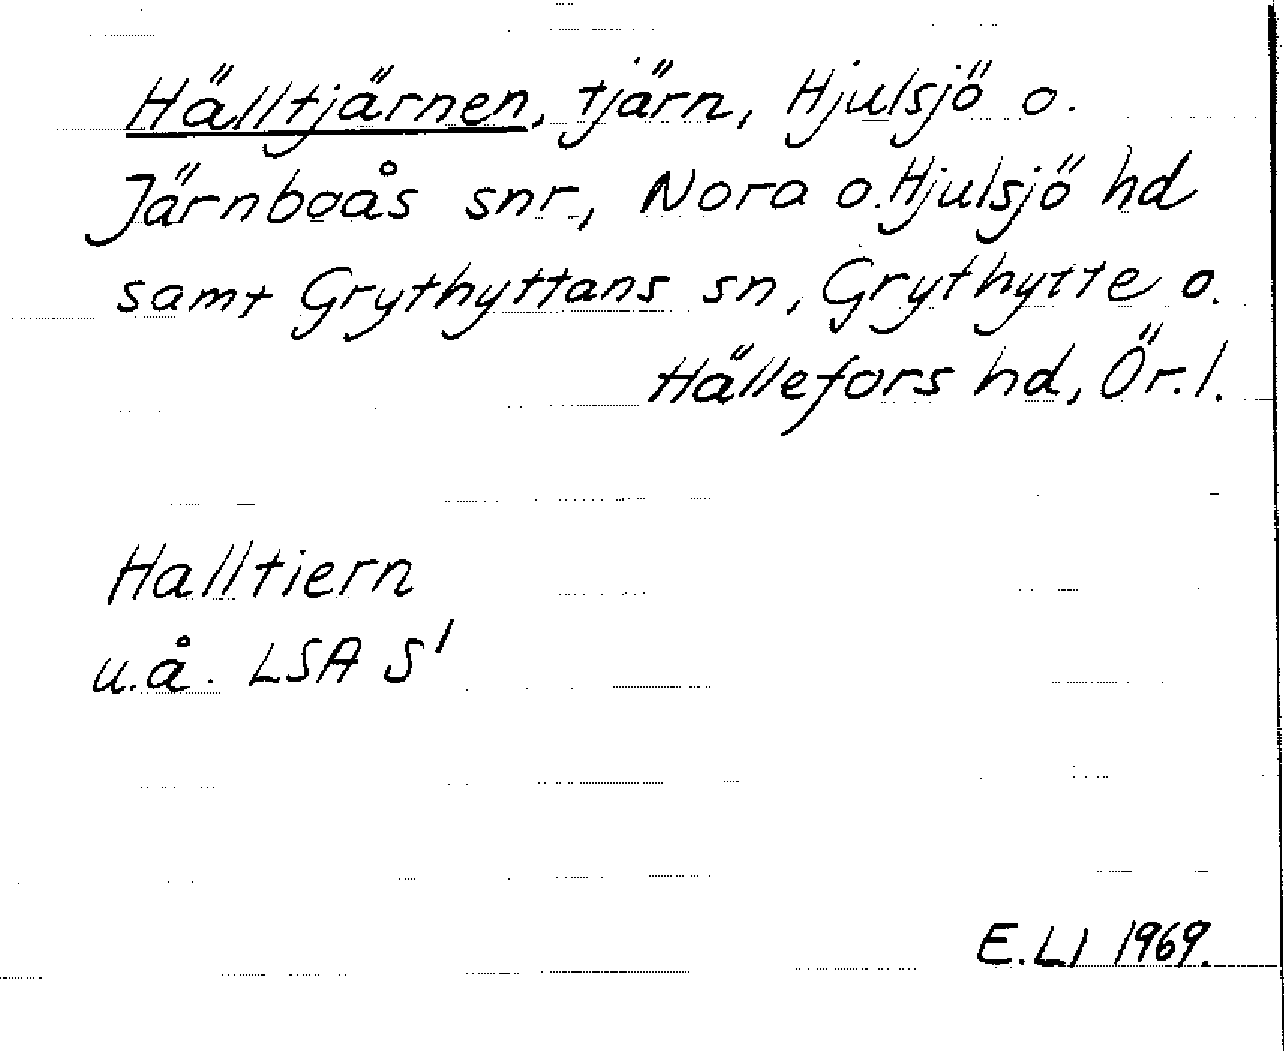 Hälltjärnen, tjärn, Hjulsjö o.
Järnboås snr, Nora o. Hjulsjö hd
samt Grythyttans sn, Grythytte o.
Hällefors hd, Ör. l.
Halltiern
u.å. LSA S'
E.LJ 1969.